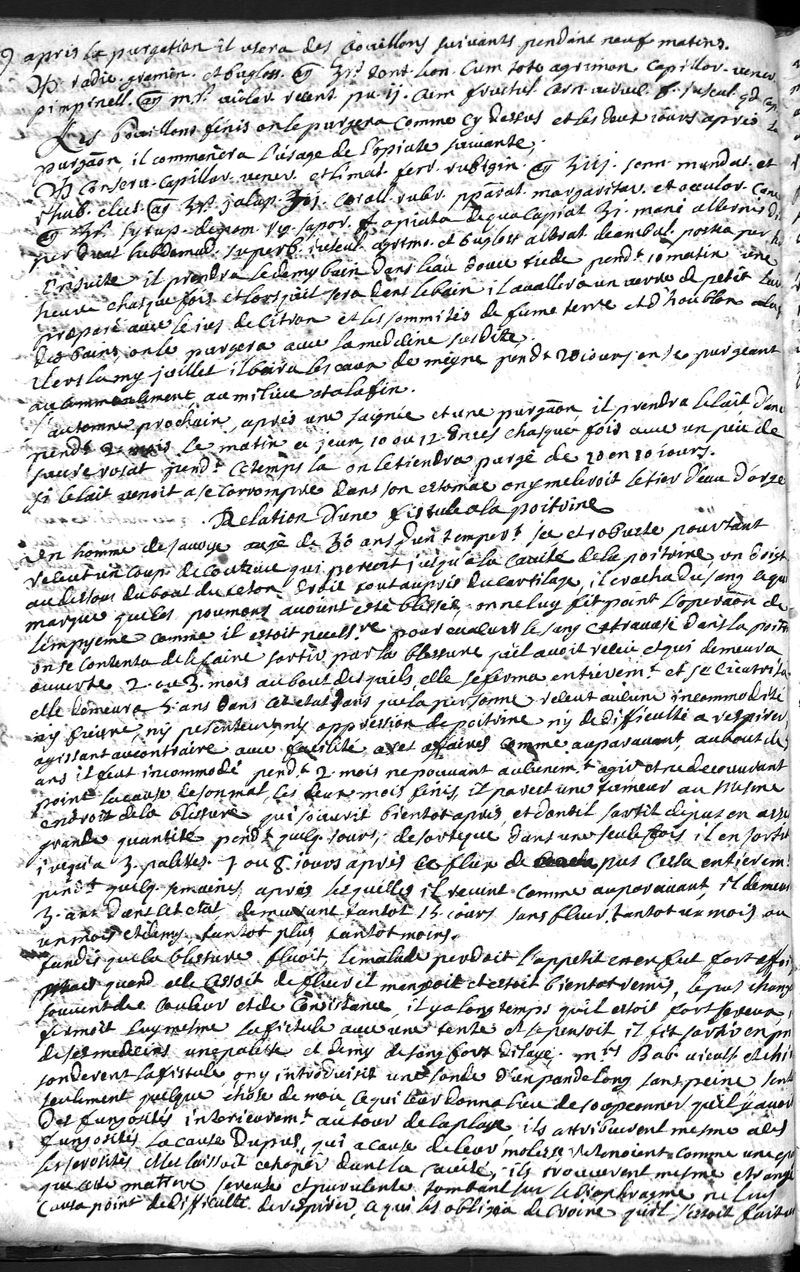 apres la purgation il usera des bouillons suivants pendant neuf matins.
radic. gramin. et bugloss. dont. lion. cum toto agrimon. capillor. vener.
pimpinell.
Les bouillons finis on le purgera comme cy dessus et les deux iours apres
purgaõn il commancera l'usage de l'opiate suivante.
conserv. capillor. vener. et limat. ferr. rubigin. senn. mundat. et
rhub. elect. jalap. corall. rubr. pparat. margaritar. et oculor. canc.
syrup. de pom. fiat opiata de qua capiat mane alternis di
Ensuite il prendra le demy bain dans l'eau douce tiede pendt. 10 matin une
heure chasque fois et lorsquil sera dans le bain il avallera un verre de petit lai
preparé avec le ius de citron et les sommités de fume terre et d'houblon a la
des bains, on le purgera avec la medecine susdite.
Vers la my juillet il boira les eaux de meyne pendt 20 iours en se purgeant
au commancement, au milieu et a la fin.
l'automne prochain, apres une saignée et une purgaõn il prendra le lait d'ane
pendt 2 mois le matin a jeun, 10 ou 12 onces chasque fois avec un peu de
sucre rosat pendt ce temps la on le tiendra purgé de 10 en 10 iours.
si le lait venoit a se corrompre dans son estomac on y mesleroit le tier d'eau d'orge
Relation d'une fistule a la poitrine
Un homme de savoye agé de 30 ans d'un tempert sec et robuste pourtant
receut un coup de couteau qui perçoit jusqu'a la cavité de la poitrine, un doigt
au dessous du bout du teton droit tout aupres du cartilage, il cracha du sang ce qui
marque que les poumons avoient esté blessés, on ne luy fit point l'operaõn de
l'empyeme comme il estoit necessre pour evacuer le sang extravasé dans la poitri
on se contenta de le faire sortir par la blessure quil avoit receu et qui demeura
ouverte 2. ou 3. mois au bout desquels elle se ferma entieremt et se cicatrisa
elle demeura 5 ans dans cet etat sans que la personne receut aucune incommodité
ny fievre, ny pesenteur, ny oppression de poitrine ny de difficulté a respirer,
agissant au contraire avec facilité a ses affaires comme auparavant, au bout de 5
ans il fut incommodé pendt 2 mois ne pouvant aucunemt agir et ne decouvrant
point la cause de son mal, les deux mois finis, il parut une tumeur au mesme
endroit de la blessure qui souvrit bientot apres, et dont il sortit du pus en asse
grande quantité pendt quelq. jours, de sorte que dans une seule fois il en sortit
iusqu'a 3. palettes. 7 ou 8. jours apres ce flux de pus cessa entierem
pendt quelq. semaines, apres lesquelles il revint comme auparavant, il demeura
3. ans dans cet etat, demeurant tantot 15 iours sans fluer, tantot un mois ou
un mois et demy, tantot plus tantot moins.
Tandis que la blessure fluoit, le malade perdoit l'appetit et en fut fort affoi
quand elle cessoit de fluer il mangoit et estoit bientot remis, le pus change
souvent de couleur et de consistance, il y a long temps quil estoit fort sereux,
fermoit luy mesme la fistule avec une tente et le pensoit il fit sortir en pre
de ses medecins une palette et demy de sang fort delayé. mrs Bab
sonderent la fistule, on y introduisit une sonde d'un pan de long sans peine
seulement quelque chose de mou, ce qui leur donna lieu de soupçonner quil y avoi
des fungosités interieuremt autour de la playe, ils attribuerent mesme a ces
fungosités la cause du pus, qui a cause de leur molesse retenoient comme une ep
les serosités et les laissoit echaper dans la cavité, ils trouverent mesme etrange
que cette matiere sereuse et purulente tombant sur le diaphragme ne luy
causa point de difficulté de respirer, ce qui les obligea de croire quil s'estoit fait